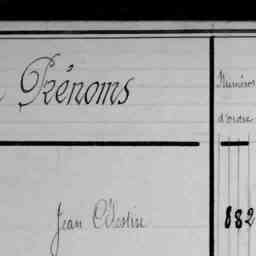 Prénoms
Numéros
d'ordre
Jean Célestin
882